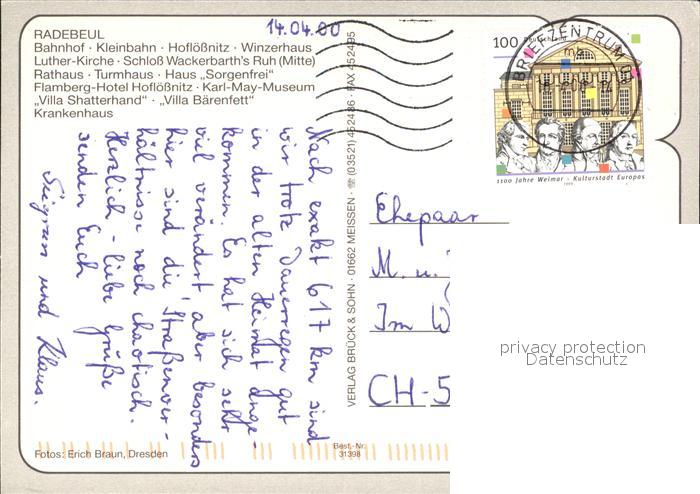 14.04.00
RADEBEUL
Bahnhof · Kleinbahn · Hoflößnitz · Winzerhaus
Luther-Kirche · Schloß Wackerbarth's Ruh (Mitte)
Rathaus · Turmhaus · Haus „Sorgenfrei“
Flamberg-Hotel Hoflößnitz · Karl-May-Museum
„Villa Shatterhand“ · „Villa Bärenfett“
Krankenhaus
Nach exakt 617 km sind
wir trotz Dauerregen gut
in der alten Heimat ange-
kommen. Es hat sich sehr
viel verändert aber besonders
hier sind die Straßenver-
hältnisse noch chaotisch.
Herzlich - liebe Grüße
senden Euch
Siegrun und Klaus.
Fotos: Erich Braun, Dresden
Best.-Nr.
31398
VERLAG BRÜCK & SOHN · 01662 MEISSEN · ☏ (03521) 452486 · FAX 452495
100 Deutschland
BRIEFZENTRUM
1100 Jahre Weimar - Kulturstadt Europas
1999
Ehepaar
M. u.
Im W
CH-5
privacy protection
Datenschutz